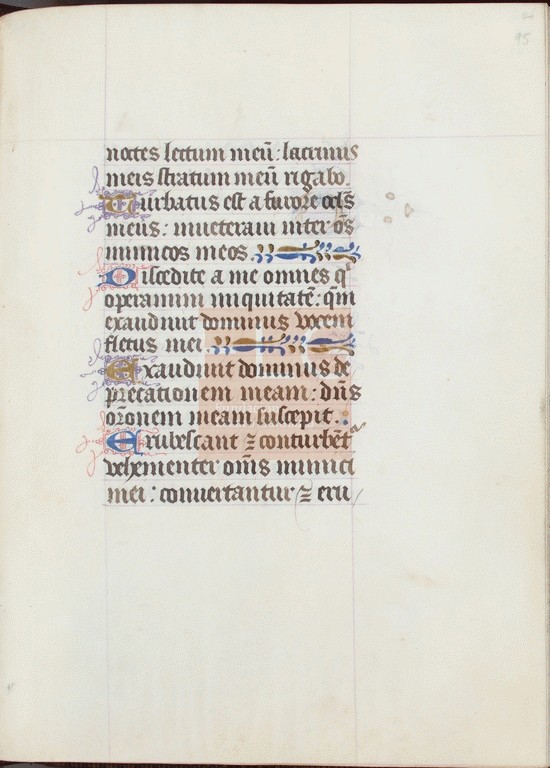 95
noctes lectum meū: lacrimis
meis stratum meū rigabo.
Turbatus est a furore ocl̄s
meus: inueteraui inter oēs
inimicos meos.
Discedite a me omnes q̄
operamini iniquitatē: qm̄
exaudiuit dominus vocem
fletus mei
Exaudiuit dominus de
precationem meam: dn̄s
or̄onem meam suscepit.
Erubescant ⁊ conturbēt̄
vehementer om̄s inimici
mei: conuertantur ⁊ eru